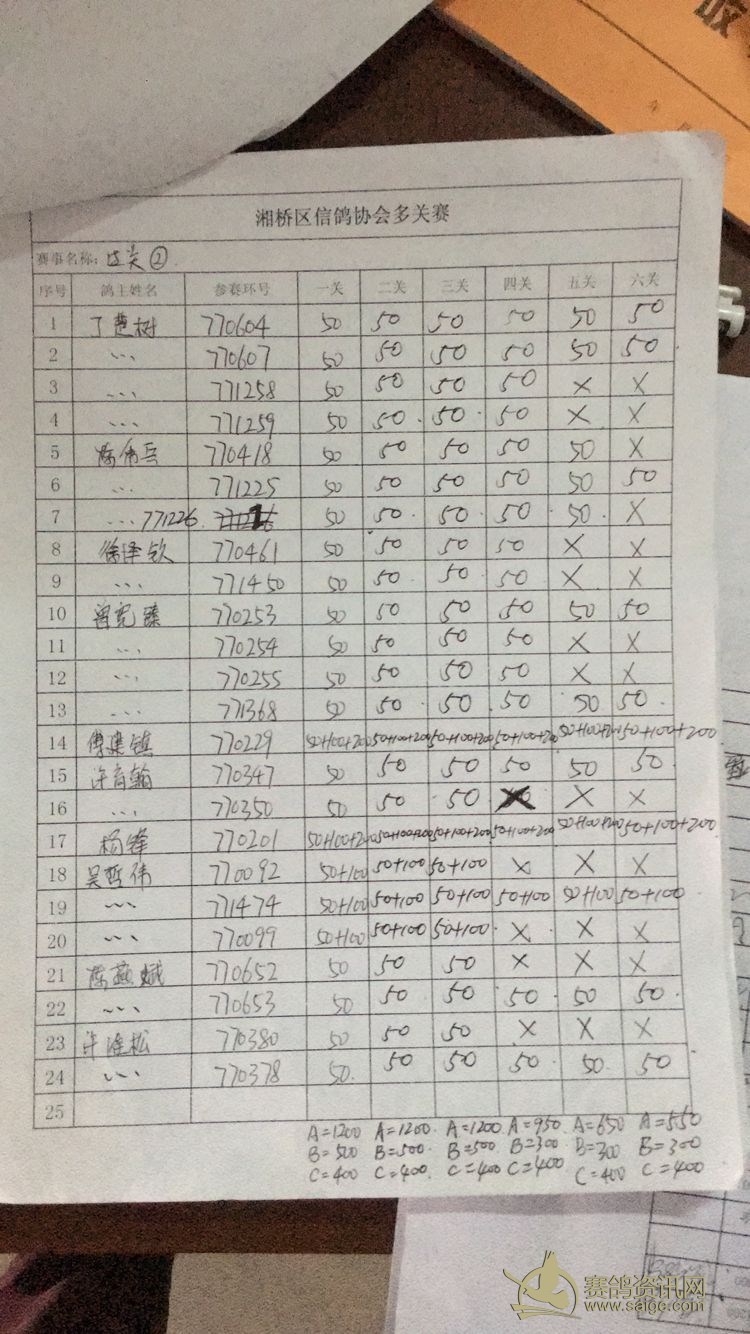 湘桥区信鸽协会多关赛
赛事名称: 过关②
序号 鸽主姓名 参赛环号 一关 二关 三关 四关 五关 六关
1 丁楚树 770604 50 50 50 50 50 50
2 … 770607 50 50 50 50 50 50
3 … 771258 50 50 50 50 × ×
4 … 771259 50 50 50 50 × ×
5 陈伟兵 770418 50 50 50 50 50 ×
6 … 771225 50 50 50 50 50 50
7 … 771226 50 50 50 50 50 ×
8 徐泽钦 770461 50 50 50 50 × ×
9 … 771450 50 50 50 50 × ×
10 曾宪臻 770253 50 50 50 50 50 50
11 … 770254 50 50 50 50 × ×
12 … 770255 50 50 50 50 × ×
13 … 771368 50 50 50 50 50 50
14 傅建镇 770229 50+100+200 50+100+200 50+100+200 50+100+200 50+100+200 50+100+200
15 许育翰 770347 50 50 50 50 50 50
16 … 770350 50 50 50 × × ×
17 杨锋 770201 50+100+200 50+100+200 50+100+200 50+100+200 50+100+200 50+100+200
18 吴哲伟 770092 50+100 50+100 50+100 × × ×
19 … 771474 50+100 50+100 50+100 50+100 50+100 50+100
20 … 770099 50+100 50+100 50+100 × × ×
21 陈燕斌 770652 50 50 50 × × ×
22 … 770653 50 50 50 50 50 50
23 许 松 770380 50 50 50 × × ×
24 … 770378 50 50 50 50 50 50
25
A=1200 A=1200 A=1200 A=950 A=650 A=550
B=500 B=500 B=500 B=300 B=300 B=300
C=400 C=400 C=400 C=400 C=400 C=400
赛鸽资讯网
www.saige.com